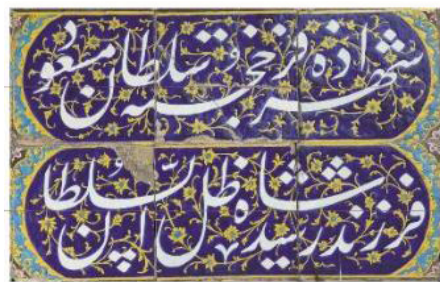 شهزاده فرخجسته سلطان مسعود
فرزند رشید شاه ظل السلطان